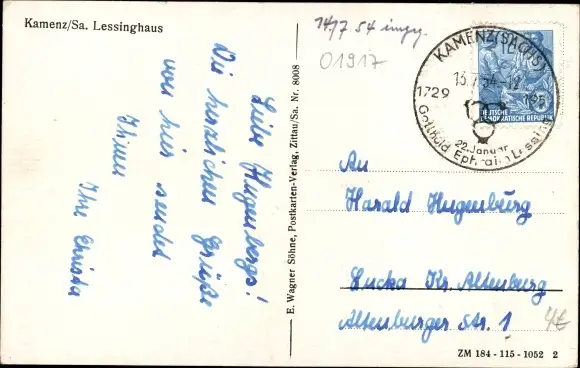 Kamenz/Sa. Lessinghaus
14/7 54
01917
KAMENZ (SACHS)
13.7.54-12
1729
22. Januar
Gotthold Ephraim Lessing
DEUTSCHE
DEMOKRATISCHE REPUBLIK
Liebe Hugenbergs!
Die herzlichen Grüße
von hier sendet
Ihnen
Ihre Christa
E. Wagner Söhne, Postkarten-Verlag, Zittau/Sa. Nr. 8008
An
Harald Hugenburg
Lucka Kr. Altenburg
Altenburger Str. 1
4€
ZM 184 - 115 - 1052 2